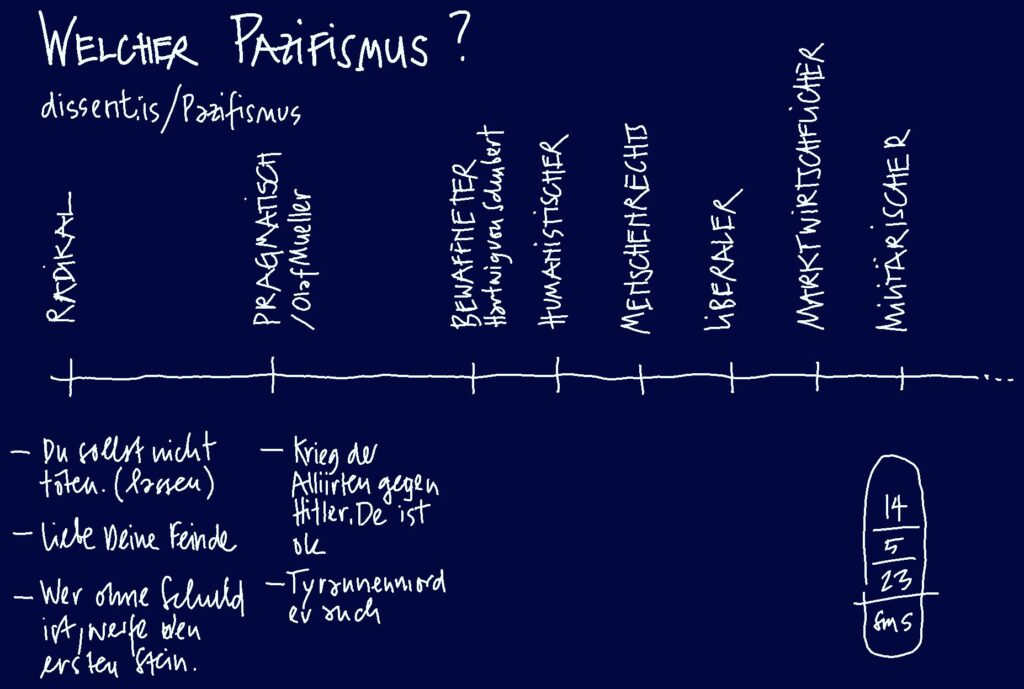 WELCHER PAZIFISMUS?
dissent.is/Pazifismus
RADIKAL
PRAGMATISCH
/Olaf Mueller
BEWAFFNETER
Hartwig von Schubert
HUMANISTISCHER
MENSCHENRECHTS
LIBERALER
MARKTWIRTSCHFLICHER
MILITÄRISCHER
...
– Du sollst nicht
töten. (lassen)
– Liebe Deine Feinde
– Wer ohne Schuld
ist, werfe den
ersten Stein.
– Krieg der
Alliirten gegen
Hitler.De ist
ok
– Tyrannenmord
ev auch
14
5
23
sms